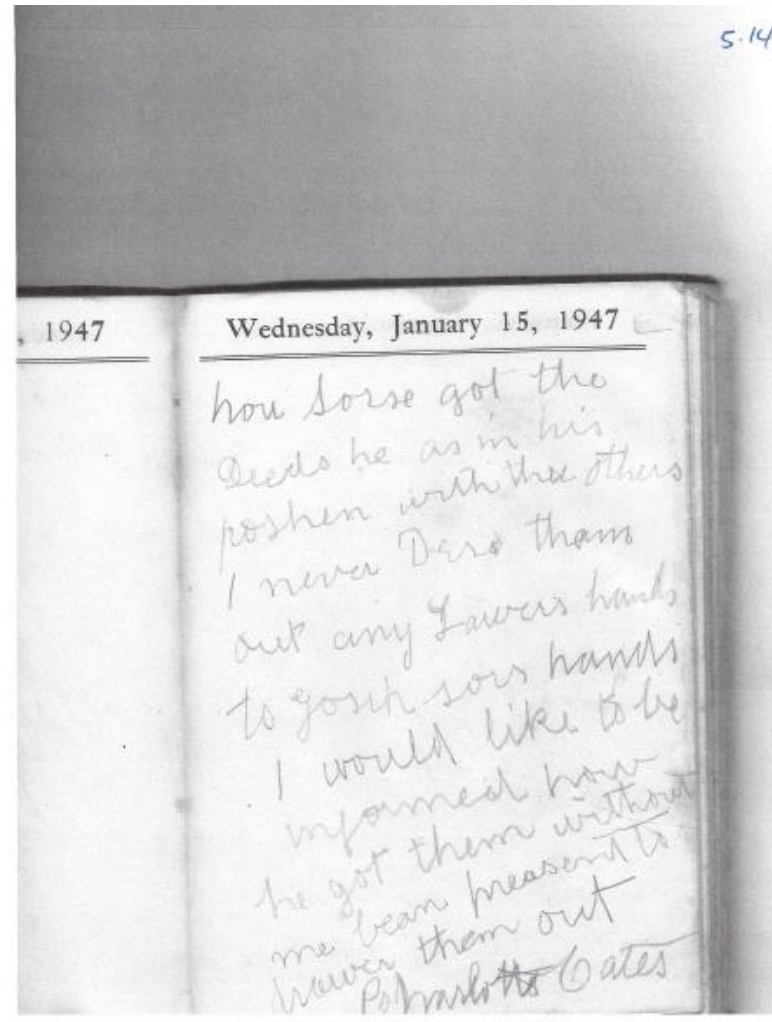 5.14
, 1947
Wednesday, January 15, 1947
how got the
Deeds he as in his
poshen with thee others
I never them
out any Lawers hands
to hands
I would like to be
informed how
he got them without
me bean preasent to
them out
Charlotte Oates